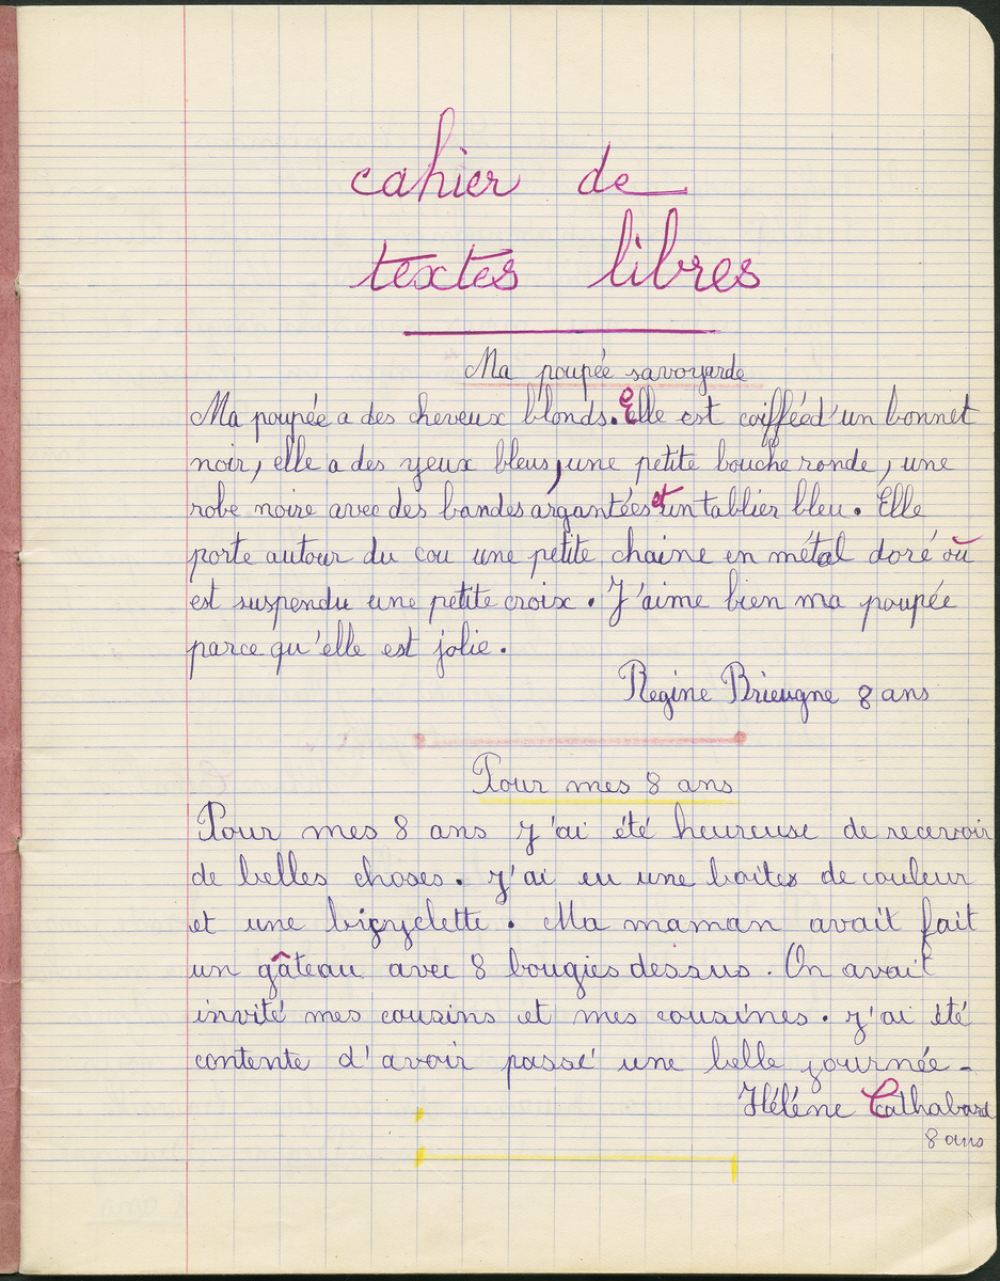 cahier de
textes libres
Ma poupée savoyarde
Ma poupée a des cheveux blonds. Elle est coiffée d'un bonnet
noir, elle a des yeux bleus, une petite bouche ronde, une
robe noire avec des bandes argantées et un tablier bleu. Elle
porte autour du cou une petite chaine en métal doré où
est suspendu une petite croix. J'aime bien ma poupée
parce qu'elle est jolie.
Regine Brieugne 8 ans
Pour mes 8 ans
Pour mes 8 ans j'ai été heureuse de recevoir
de belles choses. j'ai eu une boites de couleur
et une bicyclette. Ma maman avait fait
un gâteau avec 8 bougies dessus. On avait
invité mes cousins et mes cousines. j'ai été
contente d'avoir passé une belle journée.
Hélène Cathabard
8 ans